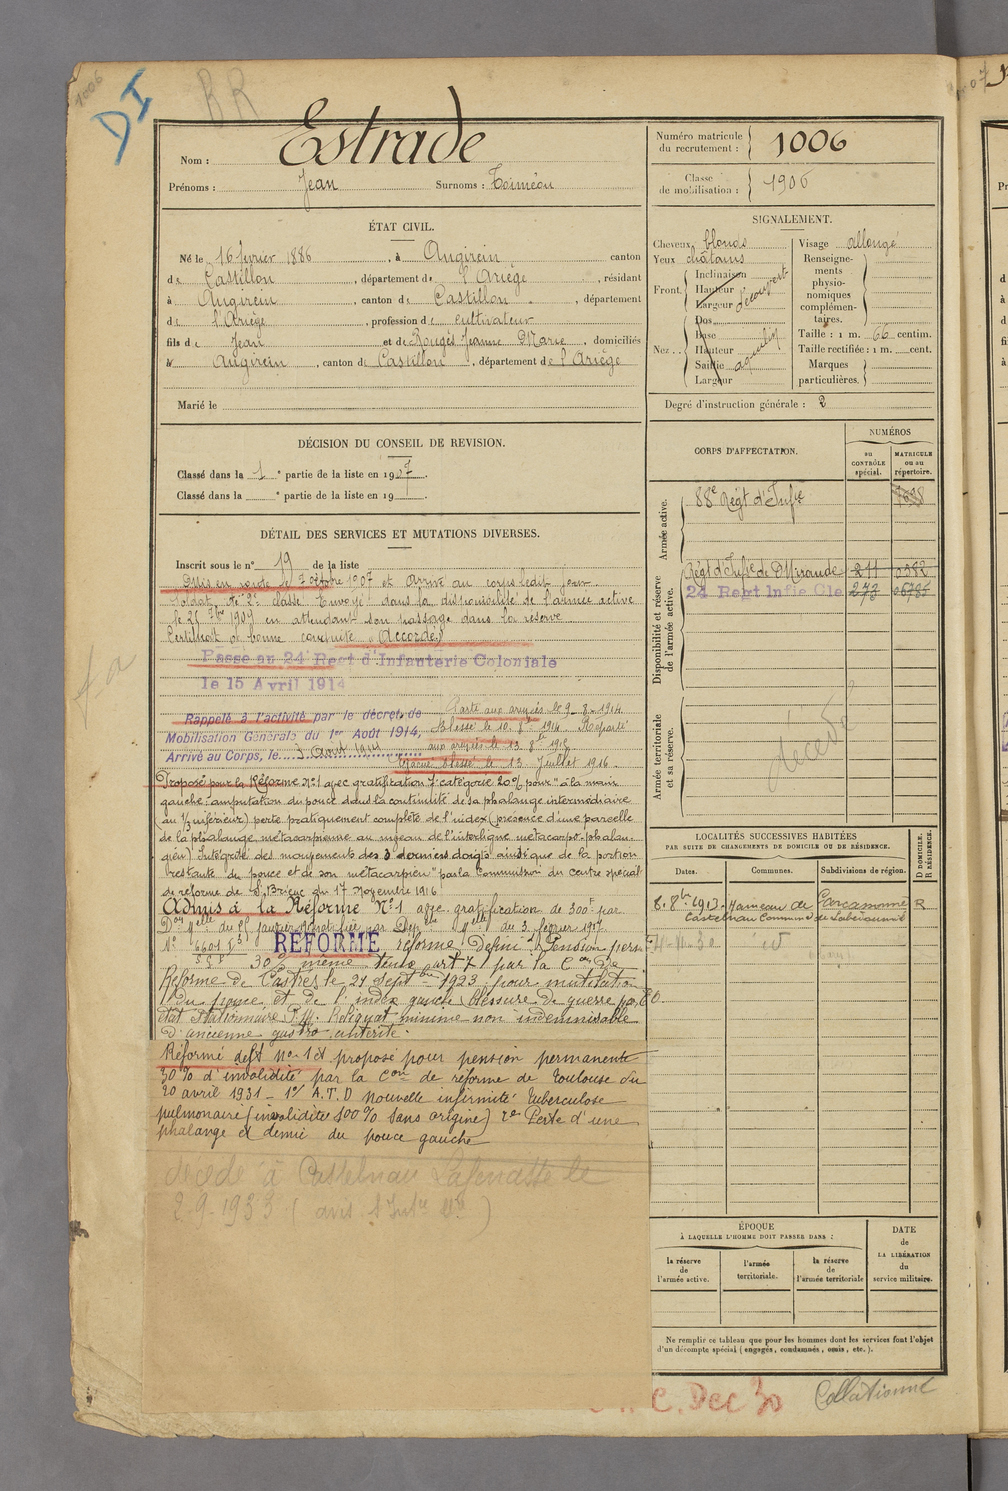 1006
DI
RR
Nom : Estrade
Prénoms : Jean Surnoms : Toiméou
Numéro matricule du recrutement : 1006
Classe de mobilisation : 1906
ÉTAT CIVIL.
Né le 16 février 1886, à Augirein canton
de Castillon, département de l'Ariège, résidant
à Augirein, canton de Castillon, département
de l'Ariège, profession de cultivateur
fils de Jean et de Rougés Jeanne Marie, domiciliés
à Augirein, canton de Castillon, département de l'Ariège
Marié le
DÉCISION DU CONSEIL DE REVISION.
Classé dans la 1e partie de la liste en 1907.
Classé dans la e partie de la liste en 19 .
DÉTAIL DES SERVICES ET MUTATIONS DIVERSES.
Inscrit sous le n° 19 de la liste
Mis en route le 7 octobre 1907 et arrivé au corps ledit jour
Soldat de 2e classe. Envoyé dans la disponibilité de l'armée active
le 25 7bre 1909 en attendant son passage dans la réserve
Certificat de bonne conduite "Accordé"
Passé au 24e Regt d'Infanterie Coloniale
le 15 Avril 1914
Rappelé à l'activité par le décret de
Mobilisation Générale du 1er Août 1914,
Arrivé au Corps, le 3 Août 1914
Parti aux armées le 9-8-1914.
Blessé le 10 8bre 1914. Reparti
aux armées le 13 8bre 1915
blessé le 13 Juillet 1916.
Proposé pour la Réforme N°1 avec gratification 7e catégorie 20% pour "à la main
gauche: amputation du pouce dans la continuité de sa phalange intermédiaire
au 1/3 inférieur) perte pratiquement complète de l'index (présence d'une parcelle
de la phalange métacarpienne au niveau de l'interligne métacarpo-phalan-
gien) Intégrité des mouvements des 3 derniers doigts ainsi que de la portion
restante du pouce et de son métacarpien" par la Commission du centre spécial
de réforme de St Brieuc du 17 Novembre 1916
Admis à la Réforme N°1 avec gratification de 300F par
du 3 février 1917
RÉFORMÉ
réforme Définve Pension perm
30% même taux art 7 par la Con de
Réforme de Castres le 21 Septbre 1923 pour mutilation
du pouce et de l'index gauche Blessure de guerre
État stationnaire P.M. Reliquat minime non indemnisable
d'ancienne gastro entérite.
Réformé deft n° 1 et proposé pour pension permanente
30% d'invalidité par la Con de réforme de Toulouse du
20 avril 1931 - 1° A.T.D Nouvelle infirmité Tuberculose
pulmonaire (invalidité 100% sans origine) 2° Perte d'une
phalange et demie du pouce gauche
décédé à Castelnau
2.9.1933 (avis
SIGNALEMENT.
Cheveux blonds
Yeux châtains
Front. Inclinaison Hauteur Largeur découvert
Nez. Dos Base Hauteur Saillie Largeur aquilin
Visage allongé
Renseignements physionomiques complémentaires.
Taille : 1 m. 66 centim.
Taille rectifiée : 1 m. cent.
Marques particulières.
Degré d'instruction générale : 2
CORPS D'AFFECTATION.
NUMÉROS
au CONTRÔLE spécial.
MATRICULE ou au répertoire.
Armée active.
88e Régt d'Infie
Disponibilité et réserve de l'armée active.
Régt d'Infie de Mirande 211 0982
24 Regt Infie Cle 273
Armée territoriale et sa réserve.
décédé
LOCALITÉS SUCCESSIVES HABITÉES
PAR SUITE DE CHANGEMENTS DE DOMICILE OU DE RÉSIDENCE.
Dates. Communes. Subdivisions de région. D DOMICILE. R RÉSIDENCE.
8. 8bre 1913. Hameau de Castelnau Commune de Carcassonne R
ÉPOQUE
À LAQUELLE L'HOMME DOIT PASSER DANS :
la réserve de l'armée active.
l'armée territoriale.
la réserve de l'armée territoriale
DATE de LA LIBÉRATION du service militaire.
Ne remplir ce tableau que pour les hommes dont les services font l'objet
d'un décompte spécial (engagés, condamnés, omis, etc.).
C. Dec 30
Collationné